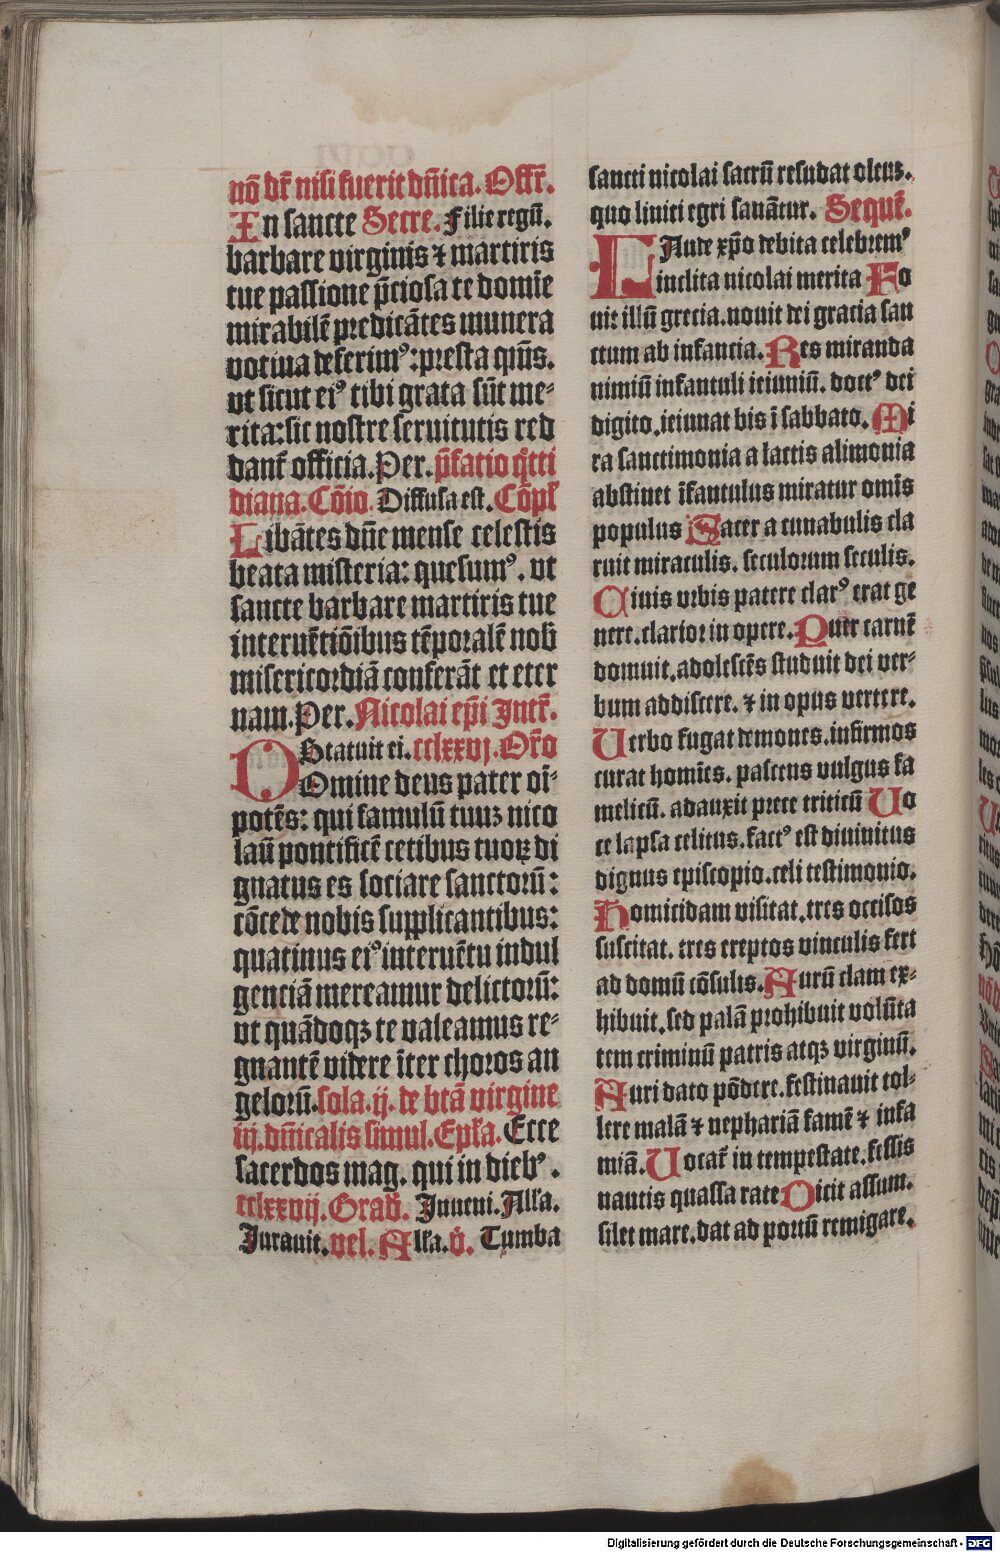 nō dr̄ nisi fuerit dn̄ica. Offr̄.
In sancte Secre. Filie regū.
barbare virginis ⁊ martiris
tue passione p̄ciosa te domīe
mirabilē predicātes munera
votiua deferimꝰ: presta qn̄s.
vt sicut eiꝰ tibi grata sūt me-
rita: sic nostre seruitutis red
dant᷑ officia. Per. p̄fatio q̄tti
diana. Cōio. Diffusa est. Cōpl᷑
Libātes dn̄e mense celestis
beata misteria: quesumꝰ. vt
sancte barbare martiris tue
interuētiōibus tēporalē nob̄
misericordiā conferāt et eter
nam. Per. Nicolai ep̄i Intr̄.
Statuit ei. cclxxvj. Or̄o
Omine deus pater oī-
potēs: qui famulū tuuꝫ nico
laū pontificē cetibus tuoꝝ di
gnatus es sociare sanctorū:
cōcede nobis supplicantibus:
quatinus eiꝰ interuētu indul
genciā mereamur delictorū:
vt quādoqꝫ te valeamus re-
gnantē videre īter choros an
gelorū. sola. ij. de btā virgine
iij. dn̄icalis simul. Epl᷑a. Ecce
sacerdos mag. qui in diebꝰ.
cclxxvij. Grad̄. Inueni. All᷑a.
Iurauit. vel. All᷑a. v̄. Tumba
sancti nicolai sacrū resudat oleuꝫ.
quo liniti egri sanātur. Sequē.
LAude xp̄o debita celebremꝰ
inclita nicolai merita Fo
uit illū grecia. nouit dei gracia san
ctum ab infancia. Res miranda
nimiū infantuli ieiuniū. doctꝰ dei
digito. ieiunat bis ī sabbato. Mi
ra sanctimonia a lactis alimonia
abstinet īfantulus miratur omīs
populus Sacer a cunabulis cla
ruit miraculis. seculorum seculis.
Ciuis vrbis patere clarꝰ erat ge
nere. clarior in opere. Puer carnē
domuit. adolescēs studuit dei ver-
bum addiscere. ⁊ in opus vertere.
Verbo fugat demones. infirmos
curat homīes. pascens vulgus fa
melicū. adauxit prece triticū Vo
ce lapsa celitus. factꝰ est diuinitus
dignus episcopio. celi testimonio.
Homicidam visitat. tres occisos
suscitat. tres ereptos vinculis fert
ad domū cōsulis. Aurū clam ex-
hibuit. sed palā prohibuit volūta
tem criminū patris atqꝫ virginū.
Auri dato pōdere. festinauit tol-
lere malā ⁊ nephariā famē ⁊ infa
miā. Vocat᷑ in tempestate. fessis
nautis quassa rate Dicit assum.
silet mare. dat ad portū remigare.
Digitalisierung gefördert durch die Deutsche Forschungsgemeinschaft - DFG